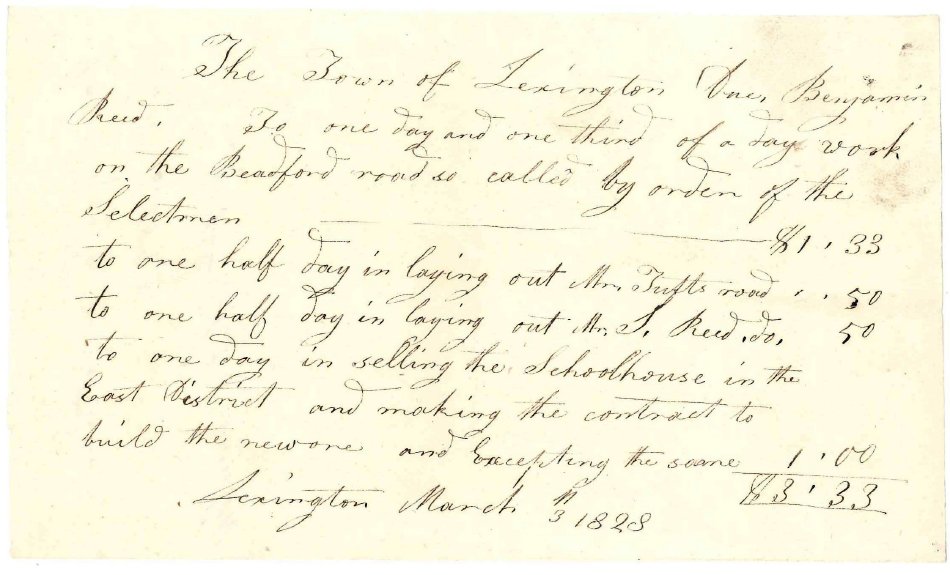 The Town of Lexington Due, Benjamin
Reed. To one day and one third of a day work
on the Beadford road so called by order of the
Selectmen $1.33
to one half day in laying out Mr. Tufts road . . 50
to one half day in laying out Mr. S. Reed. do. 50
to one day in selling the Schoolhouse in the
East District and making the contract to
build the new one and Excepting the same 1.00
$3.33
Lexington March 3 1828